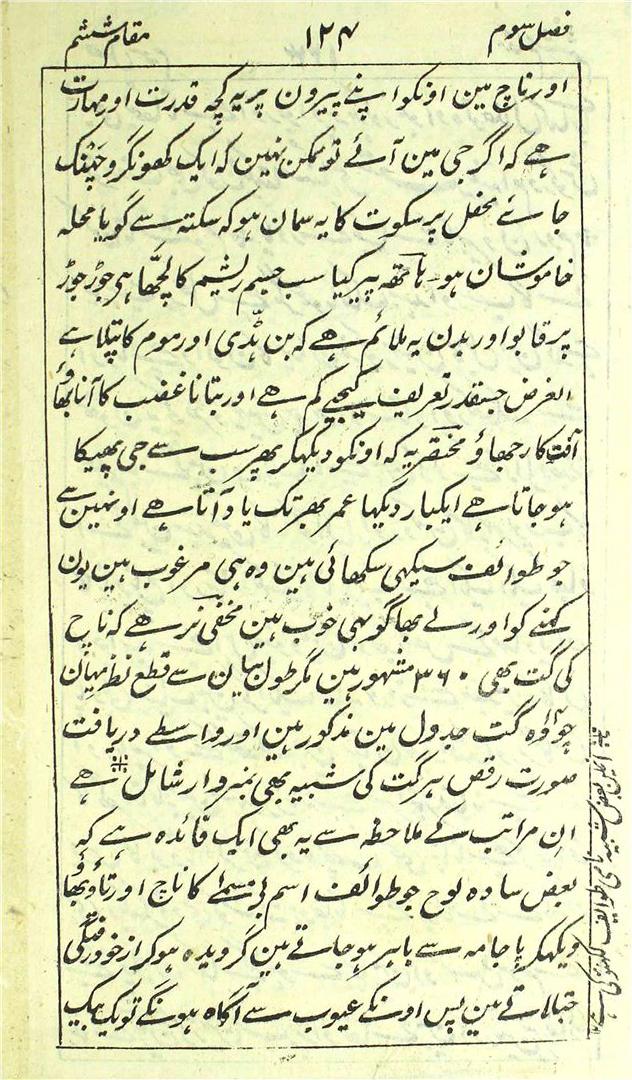 فصل سوم ۱۲۴ مقام ششم
اور ناچ مین اونکو اپنے پیرون پر یہ کچہ قدرت اور مہارت
ہے کہ اگر جی مین آئے تو ممکن نہین کہ ایک گھونگرو چھنک
جائے محفل پر سکوت کا یہ سمان ہو کہ سکتہ سے گویا محلہ
خاموشان ہو۔ ہاتھہ پیر کیا سب جسم ریشم کا لچھّا ہر جوڑ جوڑ
پر قابو اور بدن یہ ملائم ہے کہ بن ہڈی اور موم کا پتلا ہے
الغرض جسقدر تعریف کیجیے کم ہے اور بتانا غضب کا آنا بھاؤ
آفت کا رجھاؤ مختصر یہ کہ اونکو دیکہکر پھر سب سے جی پھیکا
ہو جاتا ہے ایکبار دیکہا عمر بھر تک یاد آتا ہے اونہین سے
جو طوائف سیکہی سکھائی ہین وہ ہی مرغوب ہین یون
کہنے کو اور لے بھاگو بہی خوب ہین مخفی نرہے کہ ناچ
کی گت بھی ۳۶۰ مشہور ہین مگر طول بیان سے قطع نظر یہان
چودہ گت جدول مین مذکور ہین اور واسطے دریافت
صورت رقص ہر گت کی شبیہ بھی نمبروار شامل ہے
ان مراتب کے ملاحظہ سے یہ بھی ایک فائدہ ہے کہ
بعض سادہ لوح جو طوائف اسم بے مسمے کا ناچ اور تاؤ بھاؤ
دیکہکر پاجامہ سے باہر ہو جاتے ہین گرویدہ ہو کر از خود رفتگی
جتلاتے ہین پس اونکے عیوب سے آگاہ ہونگے تو یک بیک